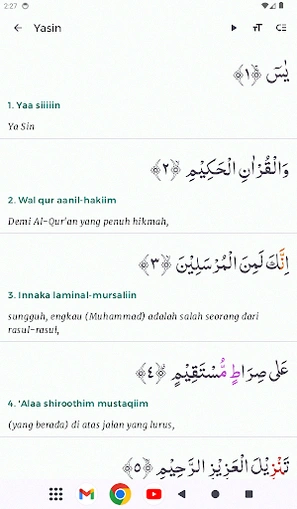 2:27
Yasin
يٰسۤ ﴿١﴾
1. Yaa siiiiin
Ya Sin
وَالْقُرْاٰنِ الْحَكِيْمِ ﴿٢﴾
2. Wal qur aanil-hakiim
Demi Al-Qur'an yang penuh hikmah,
اِنَّكَ لَمِنَ الْمُرْسَلِيْنَ ﴿٣﴾
3. Innaka laminal-mursaliin
sungguh, engkau (Muhammad) adalah salah seorang dari
rasul-rasul,
عَلٰى صِرَاطٍ مُّسْتَقِيْمٍ ﴿٤﴾
4. 'Alaa shiroothim mustaqiim
(yang berada) di atas jalan yang lurus,
تَنْزِيْلَ الْعَزِيْزِ الرَّحِيْمِ ﴿٥﴾